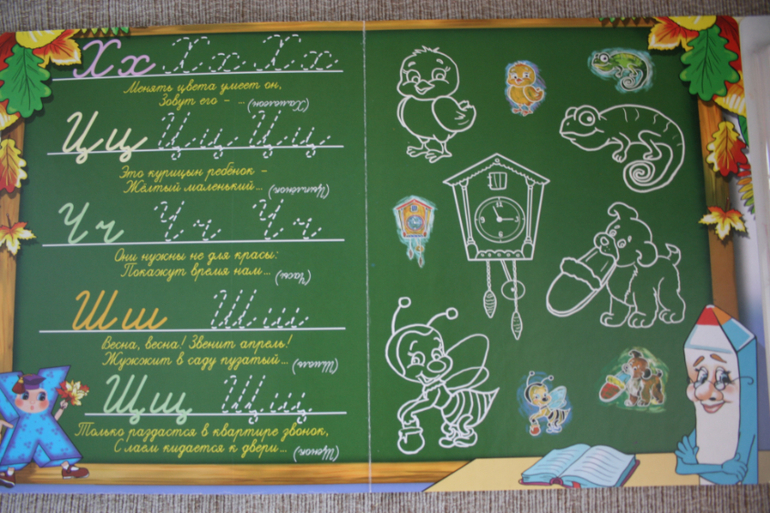 Хх Хх Хх
Менять цвета умеет он,
Зовут его - - (Хамелеон)
Цц Цц Цц
Это курицын ребёнок -
Жёлтый маленький... (Цыплёнок)
Чч Чч Чч
Они нужны не для красы:
Покажут время нам... (Часы)
Шш Шш
Весна, весна! Звенит апрель!
Жужжит в саду пузатый... (Шмель)
Щщ Щщ
Только раздастся в квартире звонок,
С лаем кидается к двери... (Щенок)